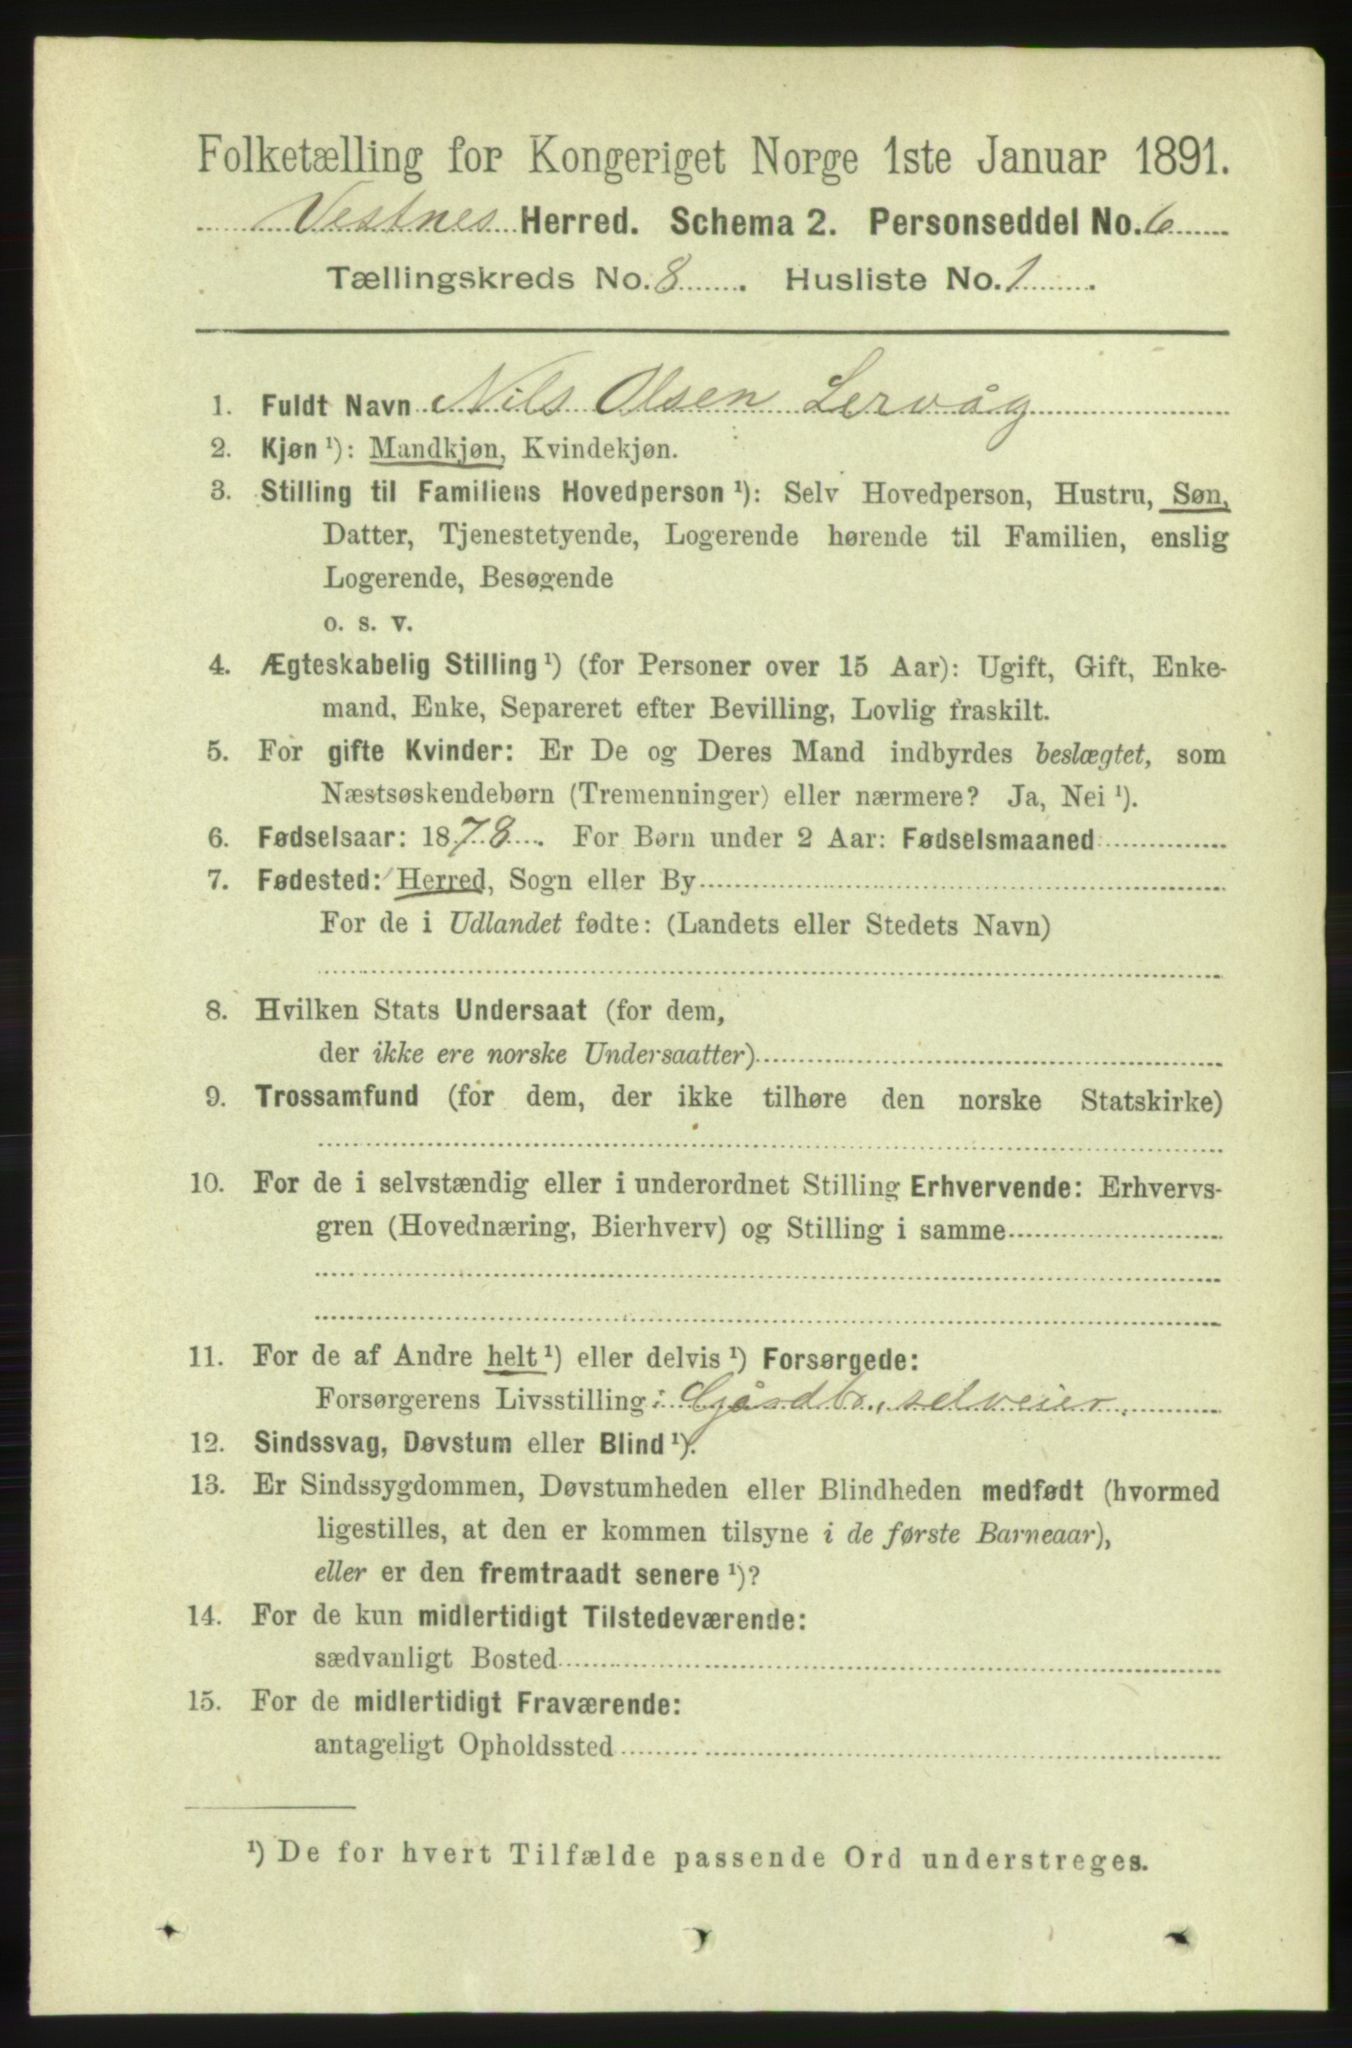 Folketælling for Kongeriget Norge 1ste Januar 1891.
Vestnes Herred. Schema 2. Personseddel No. 6
Tællingskreds No. 8. Husliste No. 1.
1. Fuldt Navn Nils Olsen Lervåg
2. Kjøn ¹): Mandkjøn, Kvindekjøn.
3. Stilling til Familiens Hovedperson ¹): Selv Hovedperson, Hustru, Søn,
Datter, Tjenestetyende, Logerende hørende til Familien, enslig
Logerende, Besøgende
o. s. v.
4. Ægteskabelig Stilling ¹) (for Personer over 15 Aar): Ugift, Gift, Enke-
mand, Enke, Separeret efter Bevilling, Lovlig fraskilt.
5. For gifte Kvinder: Er De og Deres Mand indbyrdes beslægtet, som
Næstsøskendebørn (Tremenninger) eller nærmere? Ja, Nei ¹).
6. Fødselsaar: 1878. For Børn under 2 Aar: Fødselsmaaned
7. Fødested: Herred, Sogn eller By
For de i Udlandet fødte: (Landets eller Stedets Navn)
8. Hvilken Stats Undersaat (for dem,
der ikke ere norske Undersaatter)
9. Trossamfund (for dem, der ikke tilhøre den norske Statskirke)
10. For de i selvstændig eller i underordnet Stilling Erhvervende: Erhvervs-
gren (Hovednæring, Bierhverv) og Stilling i samme
11. For de af Andre helt ¹) eller delvis ¹) Forsørgede:
Forsørgerens Livsstilling: Gårdbr., selveier.
12. Sindssvag, Døvstum eller Blind ¹).
13. Er Sindssygdommen, Døvstumheden eller Blindheden medfødt (hvormed
ligestilles, at den er kommen tilsyne i de første Barneaar),
eller er den fremtraadt senere ¹)?
14. For de kun midlertidigt Tilstedeværende:
sædvanligt Bosted
15. For de midlertidigt Fraværende:
antageligt Opholdssted
¹) De for hvert Tilfælde passende Ord understreges.